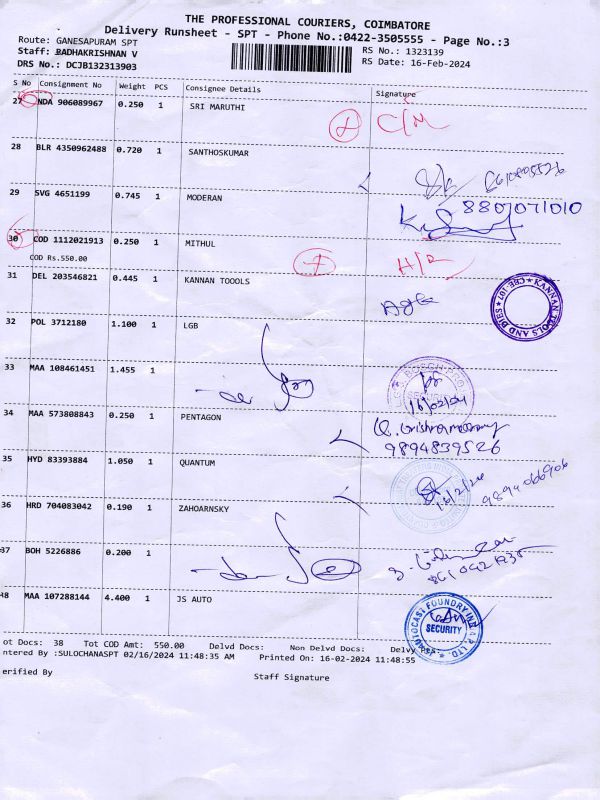 THE PROFESSIONAL COURIERS, COIMBATORE
Delivery Runsheet - SPT - Phone No.:0422-3505555 - Page No.:3
Route: GANESAPURAM SPT
Staff: RADHAKRISHNAN V
RS No.: 1323139
DRS No.: DCJB132313903
RS Date: 16-Feb-2024
S No Consignment No Weight PCS Consignee Details Signature
27 NDA 906089967 0.250 1 SRI MARUTHI
C/M
28 BLR 4350962488 0.720 1 SANTHOSKUMAR
29 SVG 4651199 0.745 1 MODERAN 8807071010
30 COD 1112021913 0.250 1 MITHUL
COD Rs.550.00
31 DEL 203546821 0.445 1 KANNAN TOOOLS
KANNAN TOOLS AND DIES * CBE-107 *
32 POL 3712180 1.100 1 LGB
33 MAA 108461451 1.455 1
16/02/24
34 MAA 573808843 0.250 1 PENTAGON
9894839526
35 HYD 83393884 1.050 1 QUANTUM
16/2/24
36 HRD 704083042 0.190 1 ZAHOARNSKY
37 BOH 5226886 0.200 1
38 MAA 107288144 4.400 1 JS AUTO
AUTOCAST FOUNDRY IND P. LTD.
SECURITY
ot Docs: 38 Tot COD Amt: 550.00 Delvd Docs: Non Delvd Docs: Delvy
ntered By :SULOCHANASPT 02/16/2024 11:48:35 AM Printed On: 16-02-2024 11:48:55
erified By
Staff Signature